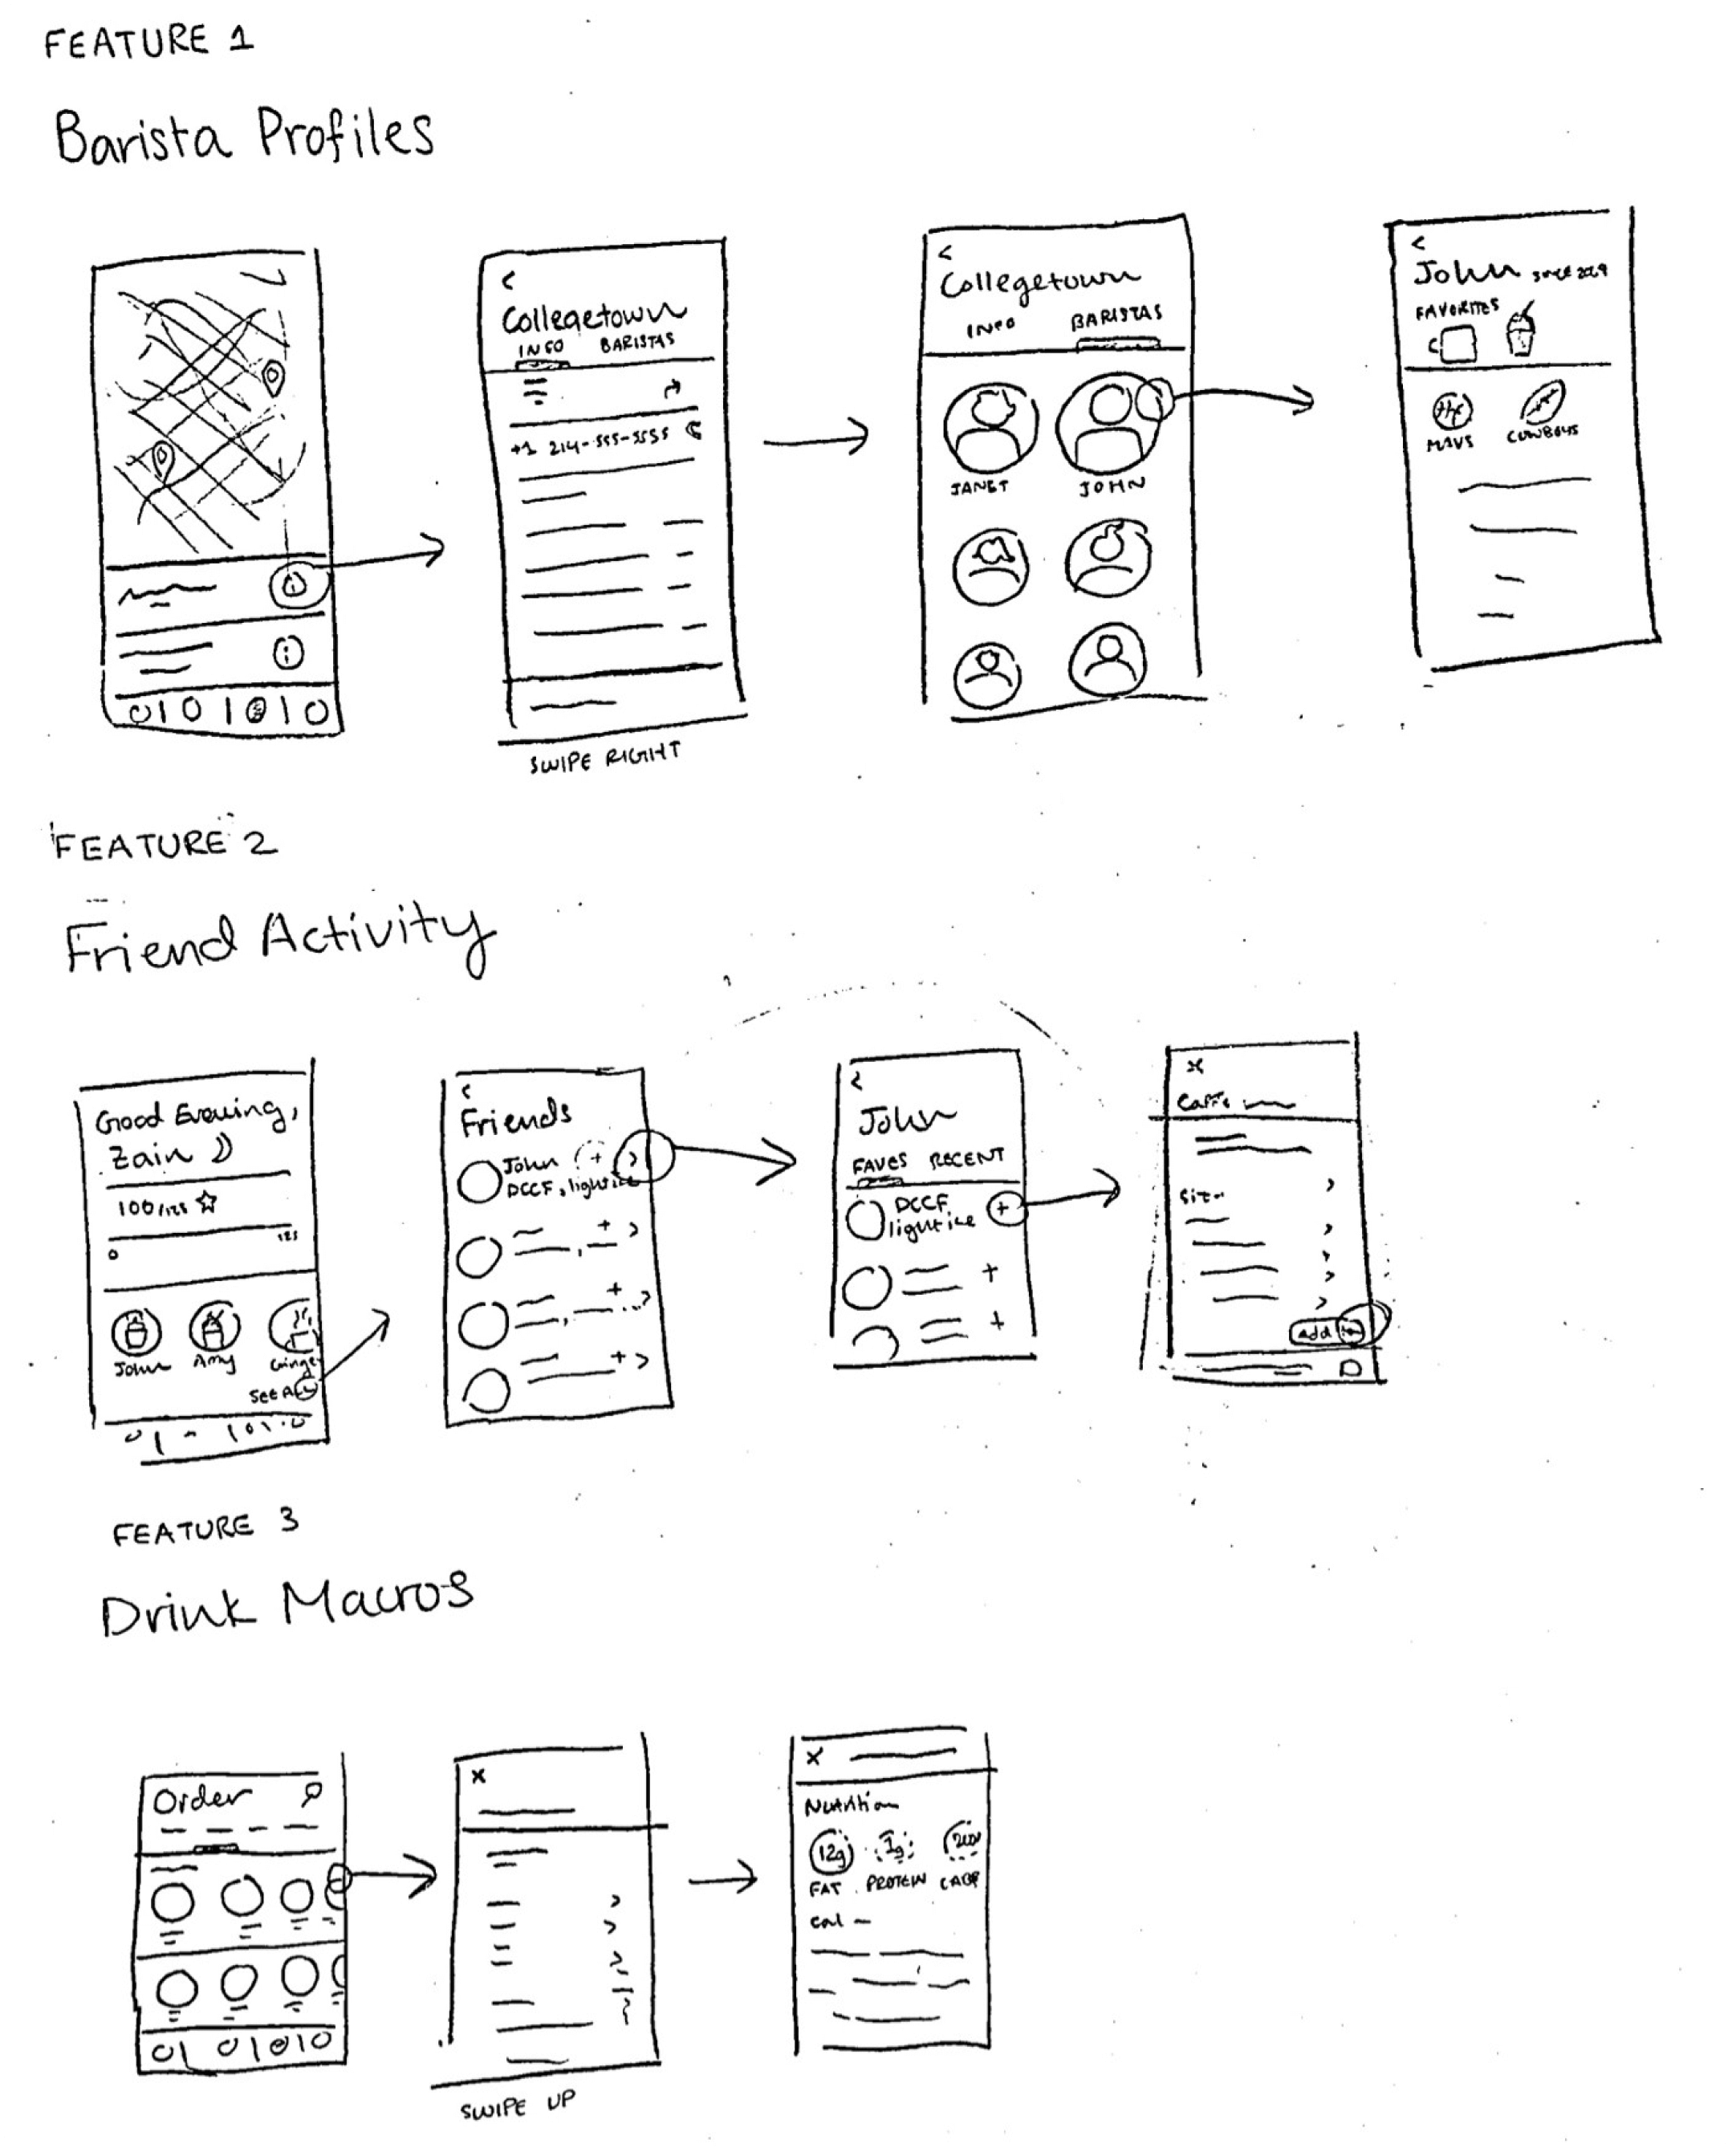 FEATURE 1
Barista Profiles
Collegetown
INFO BARISTAS
+1 214-555-5555
SWIPE RIGHT
Collegetown
INFO BARISTAS
JANET JOHN
John since 2009
FAVORITES
MAVS COWBOYS
FEATURE 2
Friend Activity
Good Evening,
Zain
100/125 ☆
0 125
John Amy Ginger
See All
Friends
John + >
DCCF, light ice
John
FAVES RECENT
DCCF, +
light ice
x
Caffe
Size
Add
FEATURE 3
Drink Macros
Order
x
SWIPE UP
x
Nutrition
12g
FAT PROTEIN CARB
cal